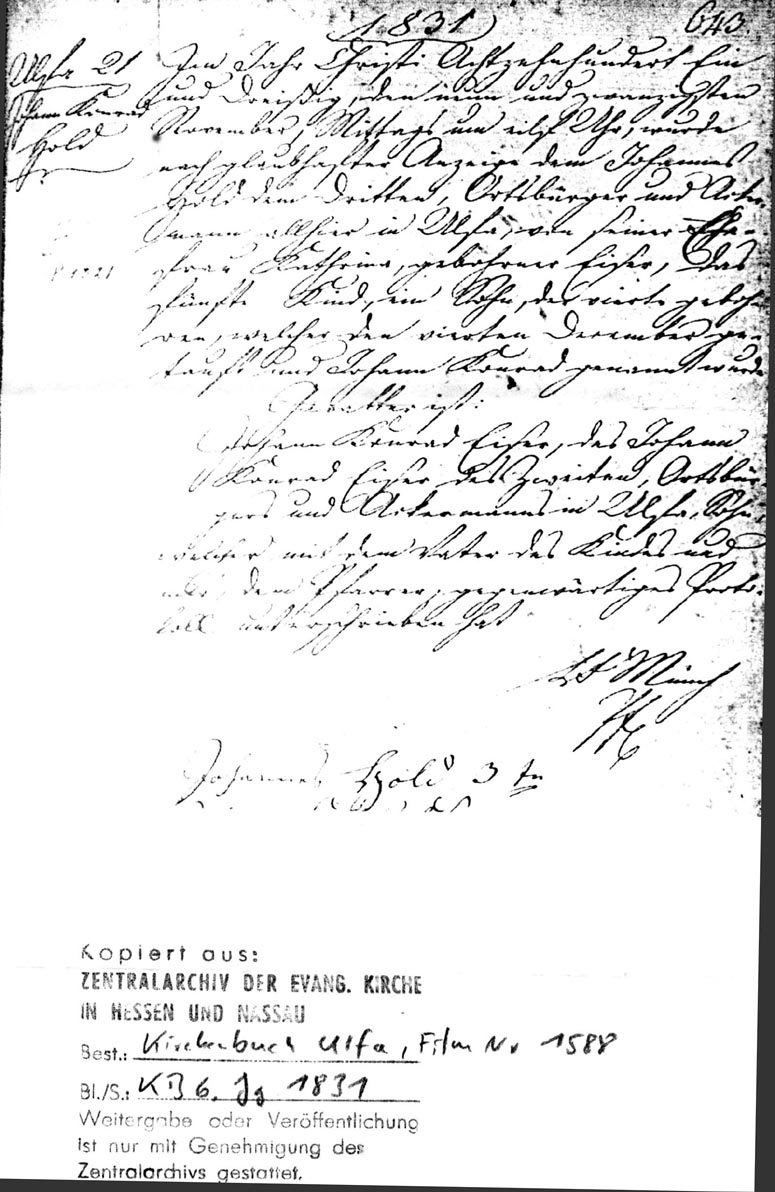 1831
643.
Ulfa 21
Johann Konrad
Hold
Im Jahr Christi Achtzehnhundert Ein
und Dreißig, den neun und zwanzigsten
November, Mittags um eilf Uhr, wurde
nach glaubhafter Anzeige dem Johannes
Hold dem Dritten, Ortsbürger und Acker-
mann allhier in Ulfa, von seiner Ehe-
frau Kathrina, gebohrner Eiser, das
fünfte Kind, ein Sohn, der vierte geboh-
ren, welcher den vierten December ge-
tauft und Johann Konrad genannt wurde
Gevatter ist:
Johann Konrad Eiser, des Johann
Konrad Eiser des Zweiten, Ortsbür-
gers und Ackermanns in Ulfa, Sohn,
welcher mit dem Vater des Kindes und
mir, dem Pfarrer, gegenwärtiges Proto-
koll unterschrieben hat
Münch
Pfr
Johannes Hold 3 tn
Kopiert aus:
ZENTRALARCHIV DER EVANG. KIRCHE
IN HESSEN UND NASSAU
Best.: Kirchenbuch Ulfa, Film Nr 1588
Bl./S.: KB 6. Jg 1831
Weitergabe oder Veröffentlichung
ist nur mit Genehmigung des
Zentralarchivs gestattet.